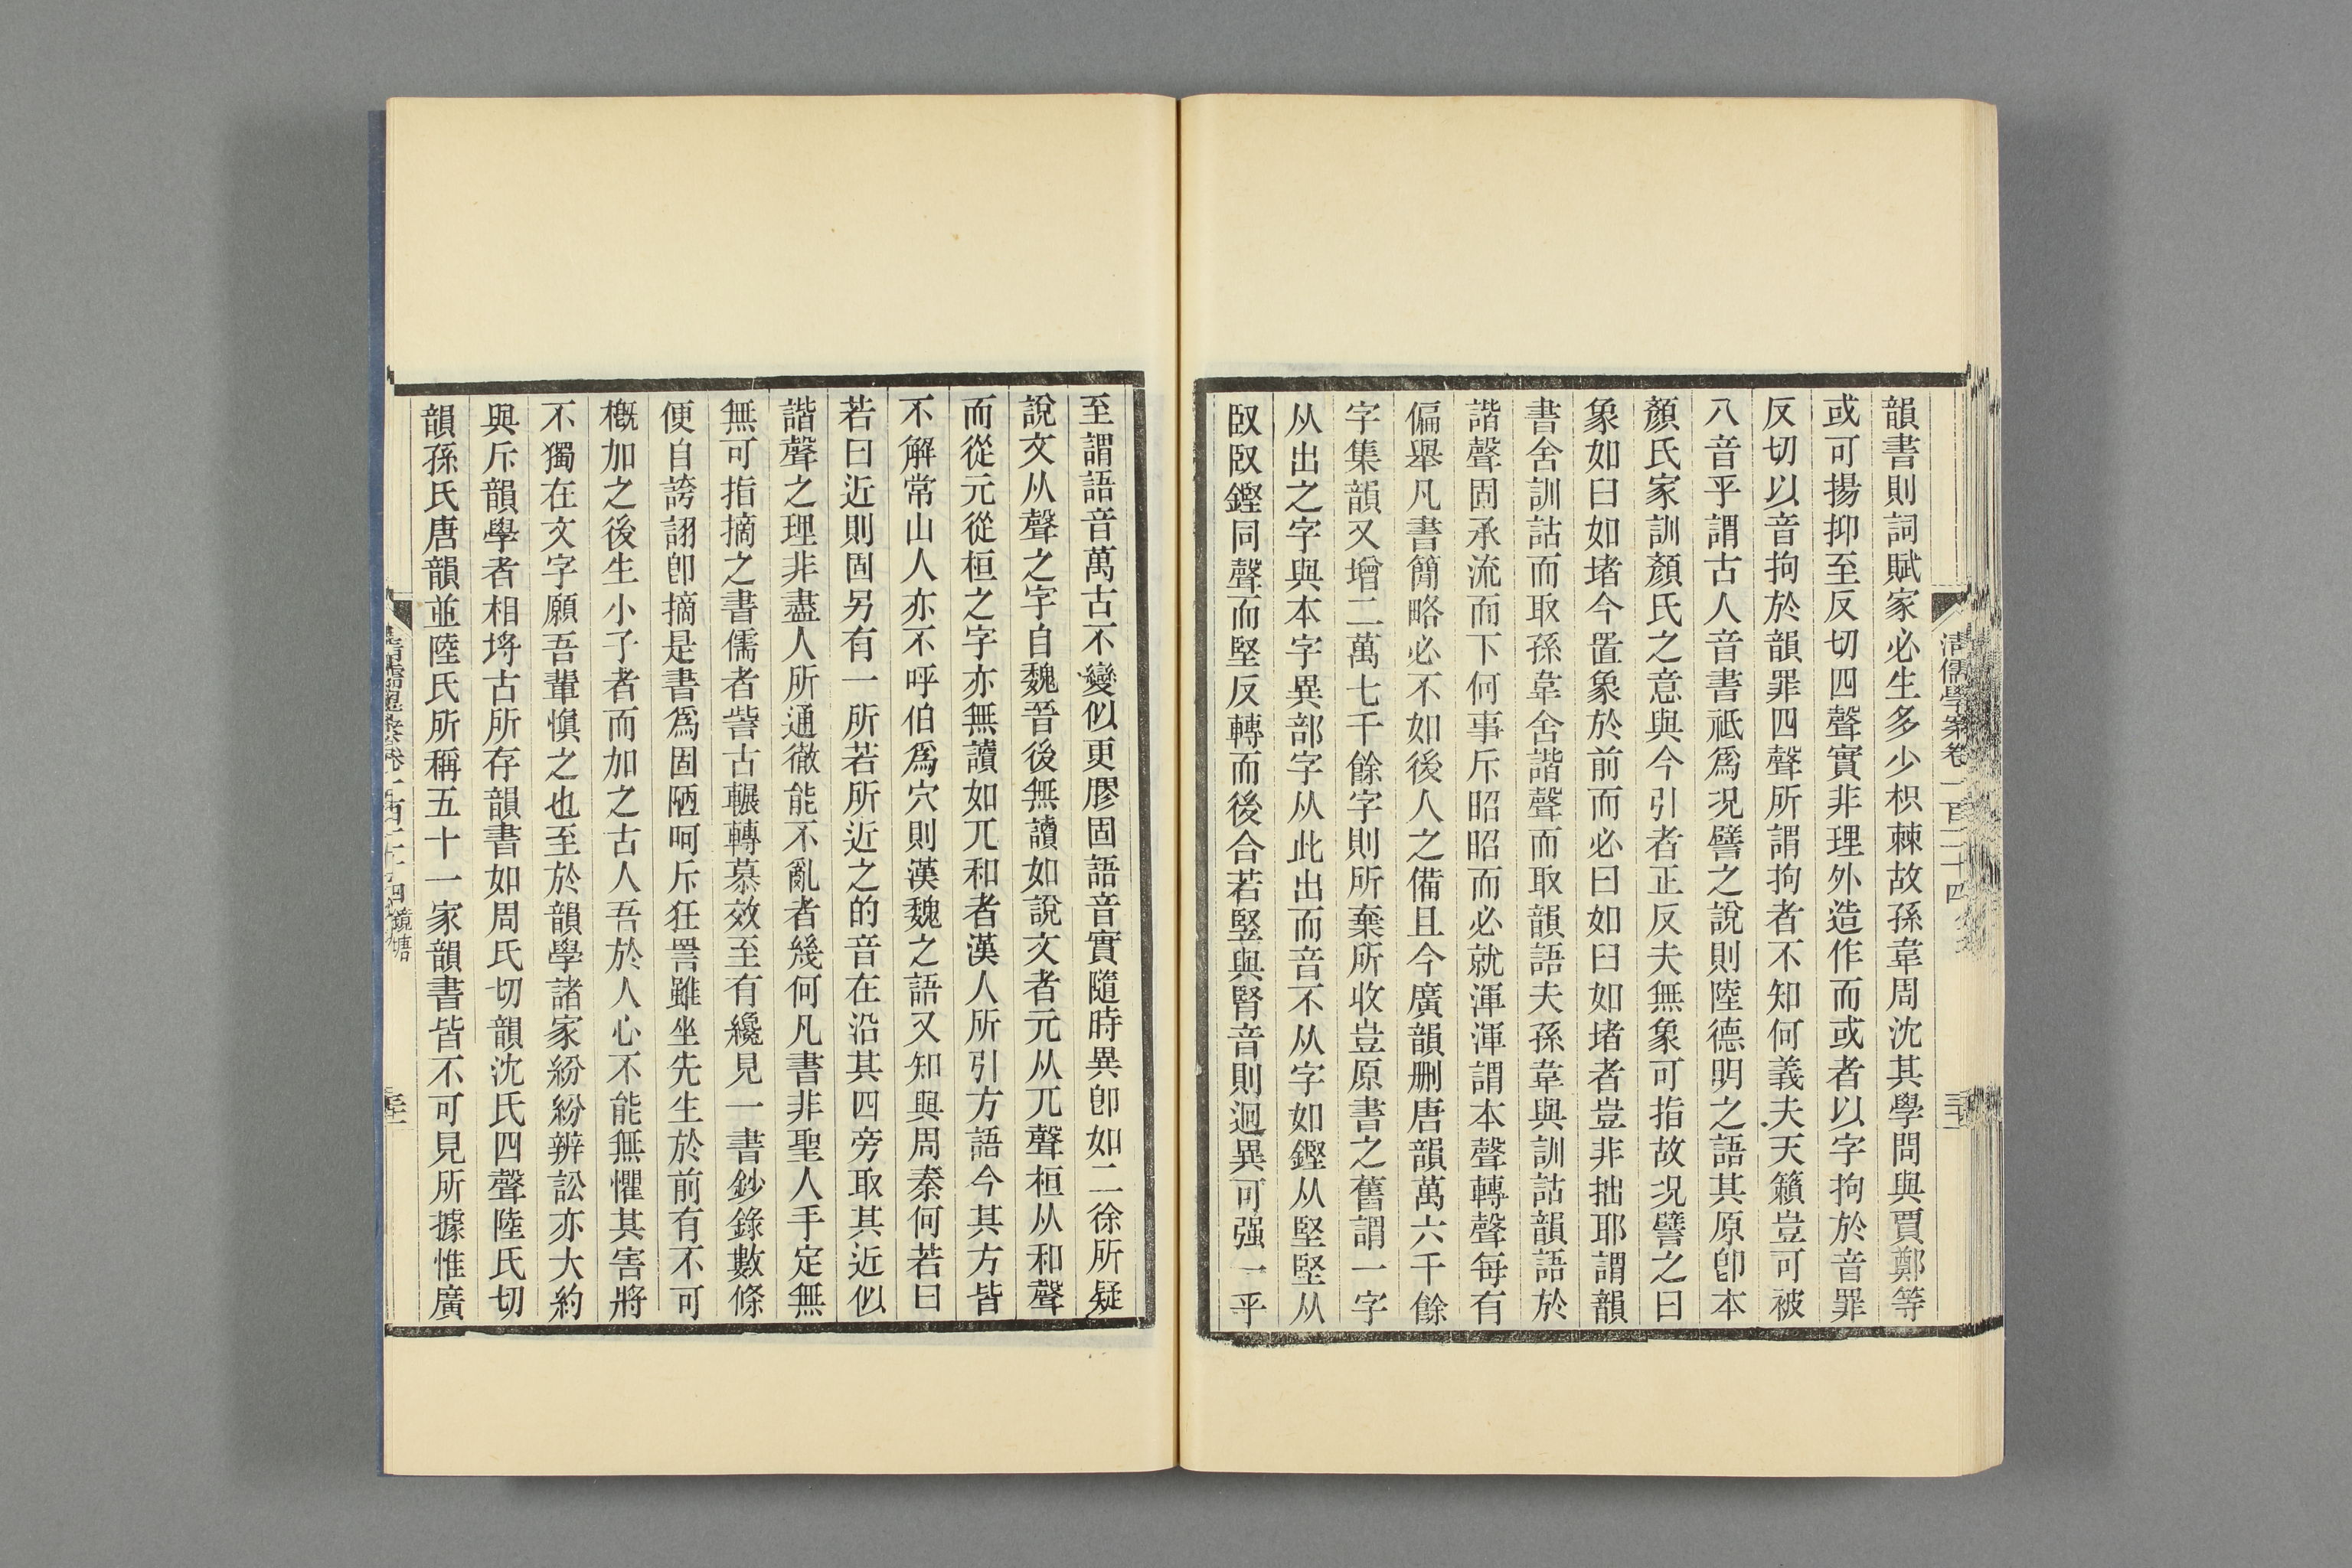 清儒學案卷一百二十四
韻書則詞賦家必生多少枳棘故孫韋周沈其學問與賈鄭等
或可揚抑至反切四聲實非理外造作而或者以字拘於音罪
反切以音拘於韻罪四聲所謂拘者不知何義夫天籟豈可被
八音乎謂古人音書祇爲況譬之說則陸德明之語其原卽本
顏氏家訓顏氏之意與今引者正反夫無象可指故況譬之曰
象如曰如堵今置象於前而必曰如曰如堵者豈非拙耶謂韻
書舍訓詁而取孫韋舍諧聲而取韻語夫孫韋與訓詁韻語於
諧聲固承流而下何事斥昭昭而必就渾渾謂本聲轉聲每有
偏舉凡書簡略必不如後人之備且今廣韻刪唐韻萬六千餘
字集韻又增二萬七千餘字則所棄所收豈原書之舊謂一字
从出之字與本字異部字从此出而音不从字如鏗从堅堅从
臤臤鏗同聲而堅反轉而後合若竪與腎音則迥異可强一乎
至謂語音萬古不變似更膠固語音實隨時異卽如二徐所疑
說文从聲之字自魏晉後無讀如說文者元从兀聲桓从和聲
而從元從桓之字亦無讀如兀和者漢人所引方語今其方皆
不解常山人亦不呼伯爲穴則漢魏之語又知與周秦何若曰
若曰近則固另有一所若所近之的音在沿其四旁取其近似
諧聲之理非盡人所通徹能不亂者幾何凡書非聖人手定無
無可指摘之書儒者訾古輾轉慕效至有纔見一書鈔錄數條
便自誇詡卽摘是書爲固陋呵斥狂詈雖坐先生於前有不可
槪加之後生小子者而加之古人吾於人心不能無懼其害將
不獨在文字願吾輩愼之也至於韻學諸家紛紛辨訟亦大約
與斥韻學者相埒古所存韻書如周氏切韻沈氏四聲陸氏切
韻孫氏唐韻並陸氏所稱五十一家韻書皆不可見所據惟廣
鏡塘